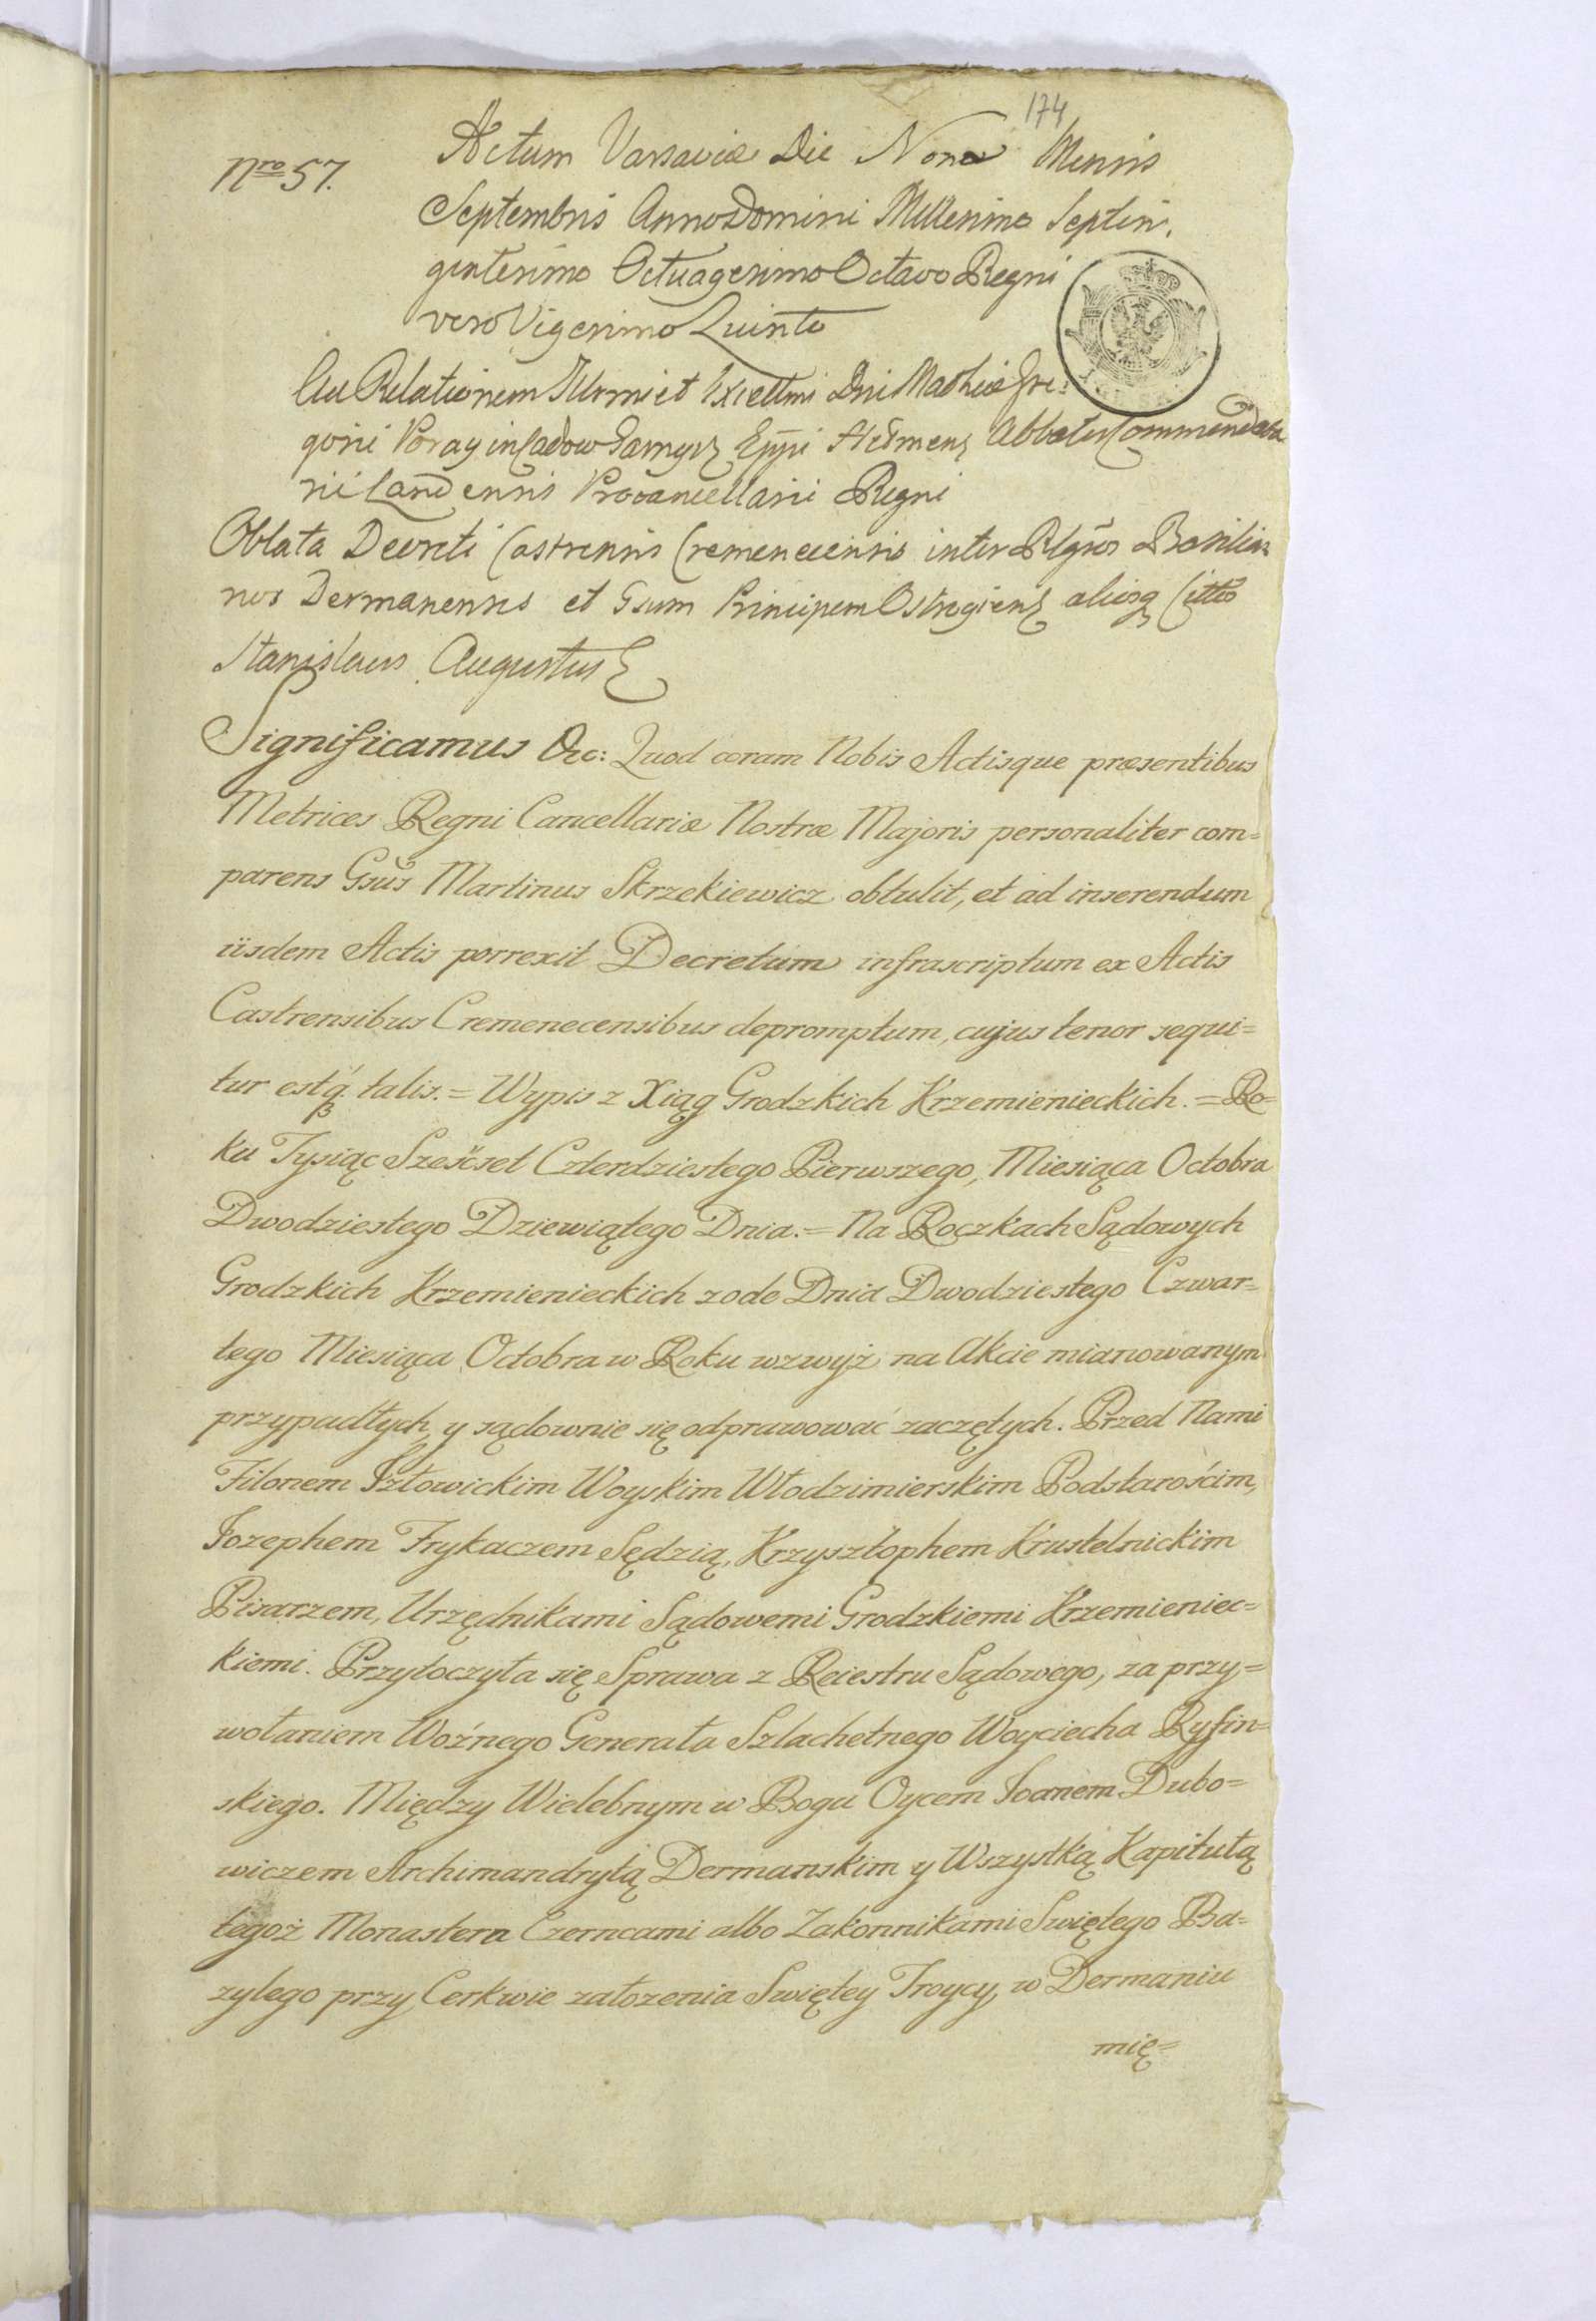 174
Nro 57.
Actum Varsaviæ Die Nona Mensis
Septembris Anno Domini Millesimo Septin,
gentesimo Octuagesimo Octavo Regni
vero Vigesimo Quinto
Ad Relationem Illrmi et Excellmi Dni Mathiæ Gre:
gorii Poray in Ladow Garnysz Eppi Helmens Abbatis Commendata
rii Landensis Procancellarii Regni
Oblata Decreti Castrensis Cremenecensis inter Rlgiosos Basilia
nos Dermanenses et Gsum Principem Ostrogiens aliosq Citto
Stanislaus Augustus
Significamus &c: Quod coram Nobis Actisque præsentibus
Metrices Regni Cancellariæ Nostræ Majoris personaliter com=
parens Gsus Martinus Skrzekiewicz obtulit, et ad inserendum
iisdem Actis porrexit Decretum infrascriptum ex Actis
Castrensibus Cremenecensibus depromptum, cujus tenor sequi=
tur estq́ talis. = Wypis z Xiąg Grodzkich Krzemienieckich. = Ro=
ku Tysiąc Szesćset Czterdziestego Pierwszego, Miesiąca Octobra
Dwodziestego Dziewiątego Dnia. = Na Roczkach Sądowych
Grodzkich Krzemienieckich zode Dnia Dwodziestego Czwar=
tego Miesiąca Octobra w Roku wzwyż na Akcie mianowanym
przypadłych, y sądownie się odprawować zaczętych. Przed Nami
Filonem Jełowickim Woyskim Włodzimierskim Podstarościm,
Jozephem Frykaczem Sędzią, Krzysztophem Krustelnickim
Pisarzem, Urzędnikami Sądowemi Grodzkiemi Krzemieniec=
kiemi. Przytoczyła się Sprawa z Reiestru Sądowego, za przy=
wołaniem Woźnego Generała Szlachetnego Woyciecha Ryfin=
skiego. Między Wielebnym w Bogu Oycem Joanem Dubo=
wiczem Archimandrytą Dermanskim y Wszystką Kapitułą
tegoż Monastera Czerncami albo Zakonnikami Swiętego Ba=
zylego przy Cerkwie założenia Swiętey Troycy, w Dermaniu
mię=